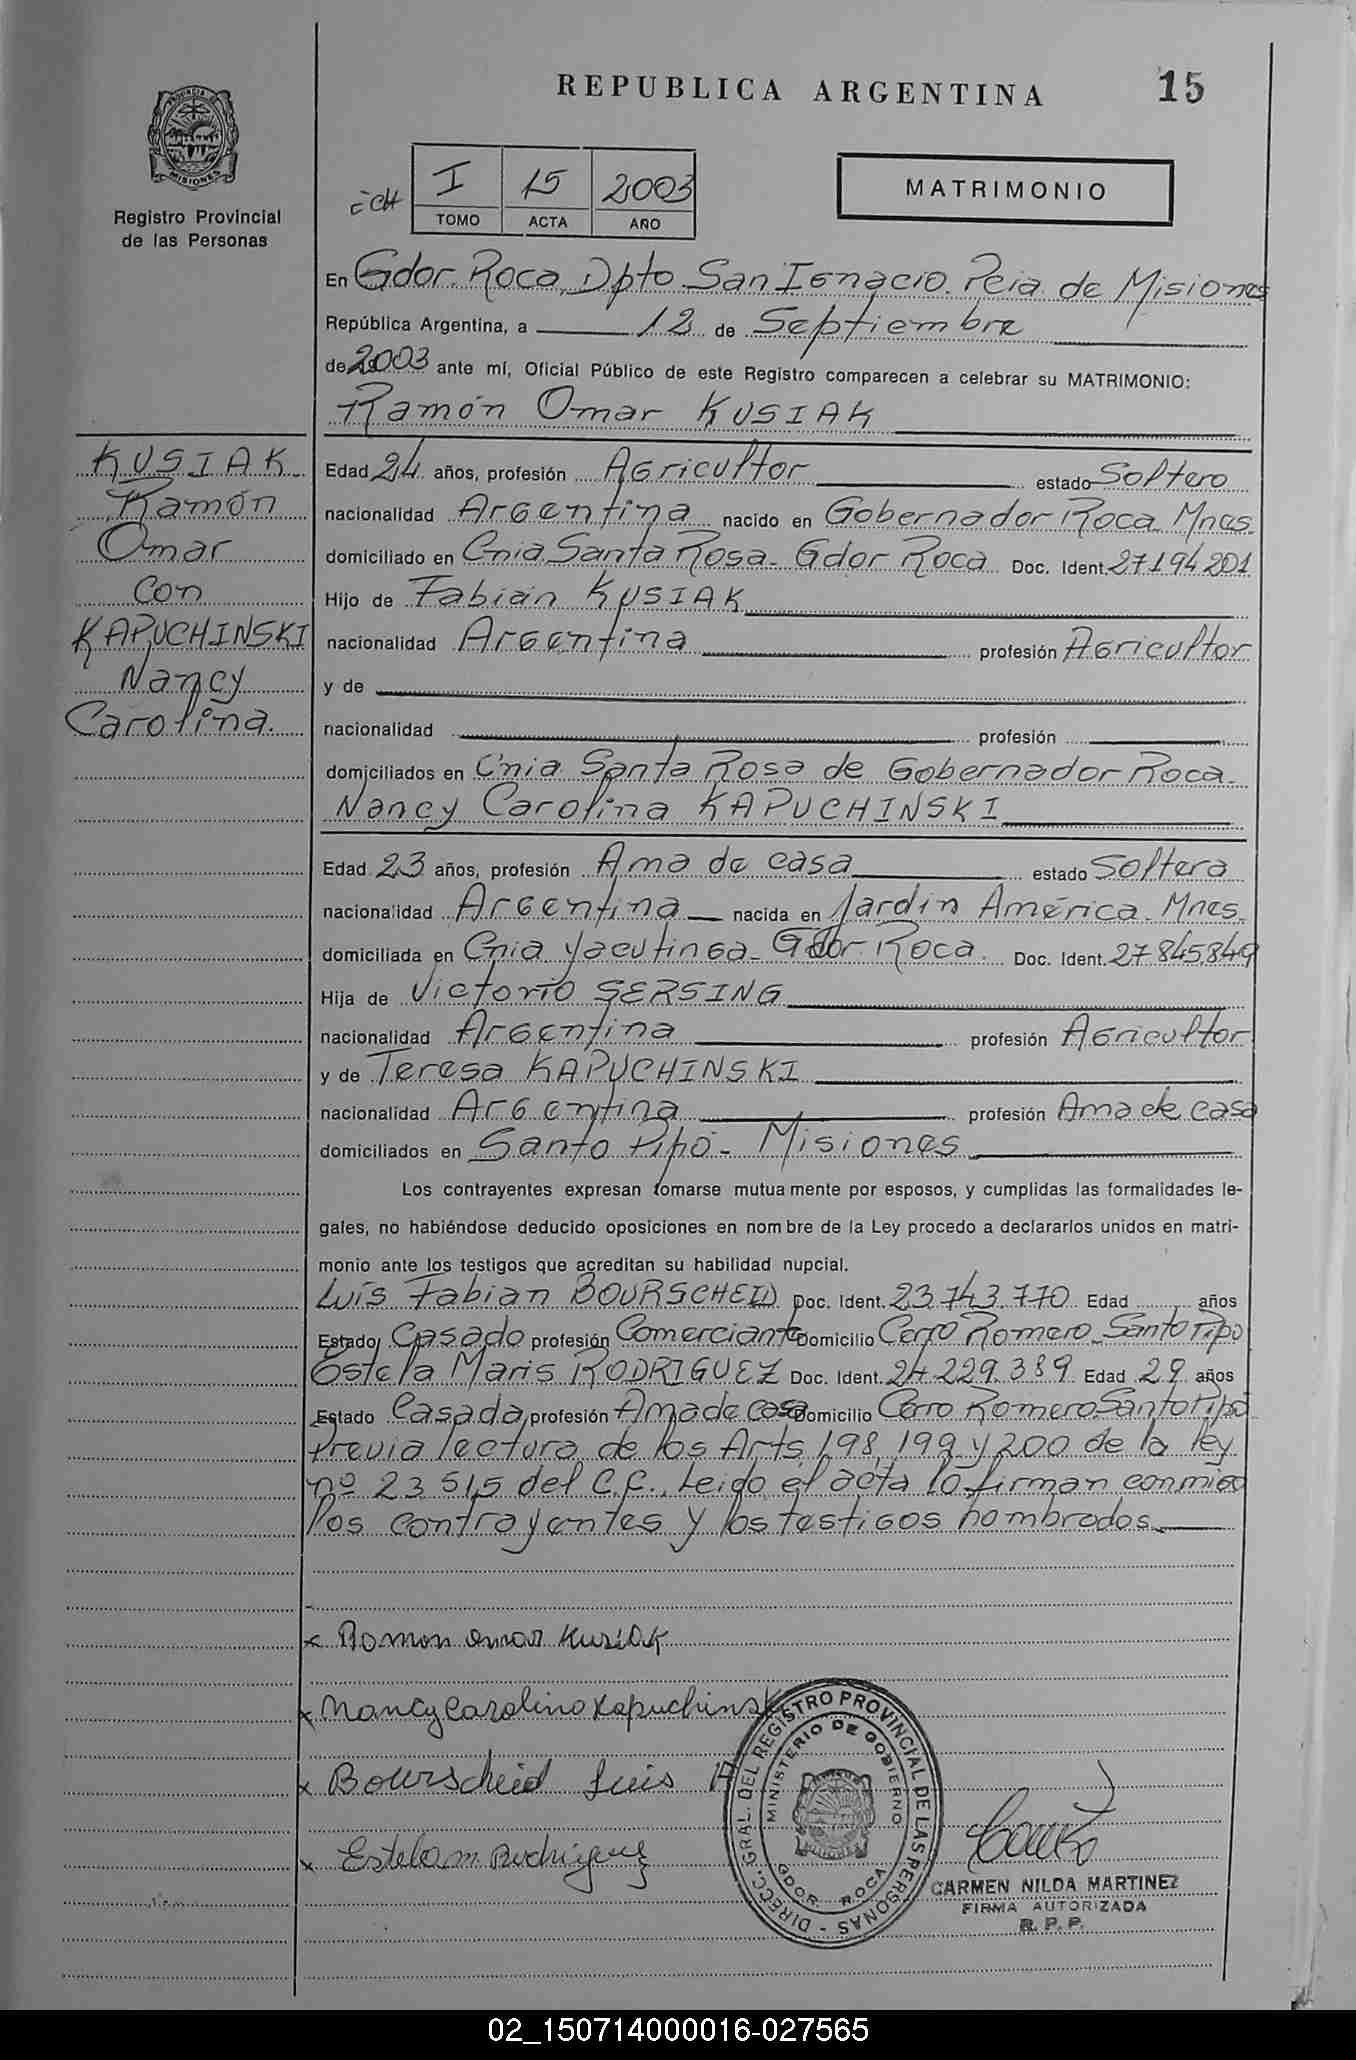 REPUBLICA ARGENTINA
15
PROVINCIA DE
MISIONES
Registro Provincial
de las Personas
I 15 2003
TOMO ACTA AÑO
MATRIMONIO
En Gdor. Roca, Dpto San Ignacio. Pcia de Misiones
República Argentina, a 12 de Septiembre
de 2003 ante mí, Oficial Público de este Registro comparecen a celebrar su MATRIMONIO:
Ramón Omar KUSIAK
KUSIAK
Ramón
Omar
con
KAPUCHINSKI
Nancy
Carolina.
Edad 24 años, profesión Agricultor estado Soltero
nacionalidad Argentina nacido en Gobernador Roca Mnes.
domiciliado en Cnia. Santa Rosa - Gdor Roca Doc. Ident. 27194201
Hijo de Fabián KUSIAK
nacionalidad Argentina profesión Agricultor
y de
nacionalidad profesión
domiciliados en Cnia Santa Rosa de Gobernador Roca.
Nancy Carolina KAPUCHINSKI
Edad 23 años, profesión Ama de casa estado Soltera
nacionalidad Argentina nacida en Jardín América. Mnes.
domiciliada en Cnia Yacutinga - Gdor. Roca. Doc. Ident. 27.845.849
Hija de Victorio SERSING
nacionalidad Argentina profesión Agricultor
y de Teresa KAPUCHINSKI
nacionalidad Argentina profesión Ama de casa
domiciliados en Santo Pipó - Misiones
Los contrayentes expresan tomarse mutuamente por esposos, y cumplidas las formalidades le-
gales, no habiéndose deducido oposiciones en nombre de la Ley procedo a declararlos unidos en matri-
monio ante los testigos que acreditan su habilidad nupcial.
Luis Fabian BOURSCHEID Doc. Ident. 23.743.770 Edad años
Estado Casado profesión Comerciante Domicilio Cerro Romero - Santo Pipó
Estela Maris RODRIGUEZ Doc. Ident. 24.229.389 Edad 29 años
Estado Casada profesión Ama de casa Domicilio Cerro Romero Santo Pipó
Previa lectura de los Arts. 198, 199 y 200 de la ley
nº 23.515 del C.C., Leido el acta lo firman conmigo
los contrayentes y los testigos nombrados.
x Ramon Omar Kusiak
x Nancy Carolina Kapuchinski
x Bourscheid Luis
x Estela M. Rodriguez
DIRECC. GRAL. DEL REGISTRO PROVINCIAL DE LAS PERSONAS
MINISTERIO DE GOBIERNO
GDOR. ROCA
CARMEN NILDA MARTINEZ
FIRMA AUTORIZADA
R. P. P.
02_150714000016-027565